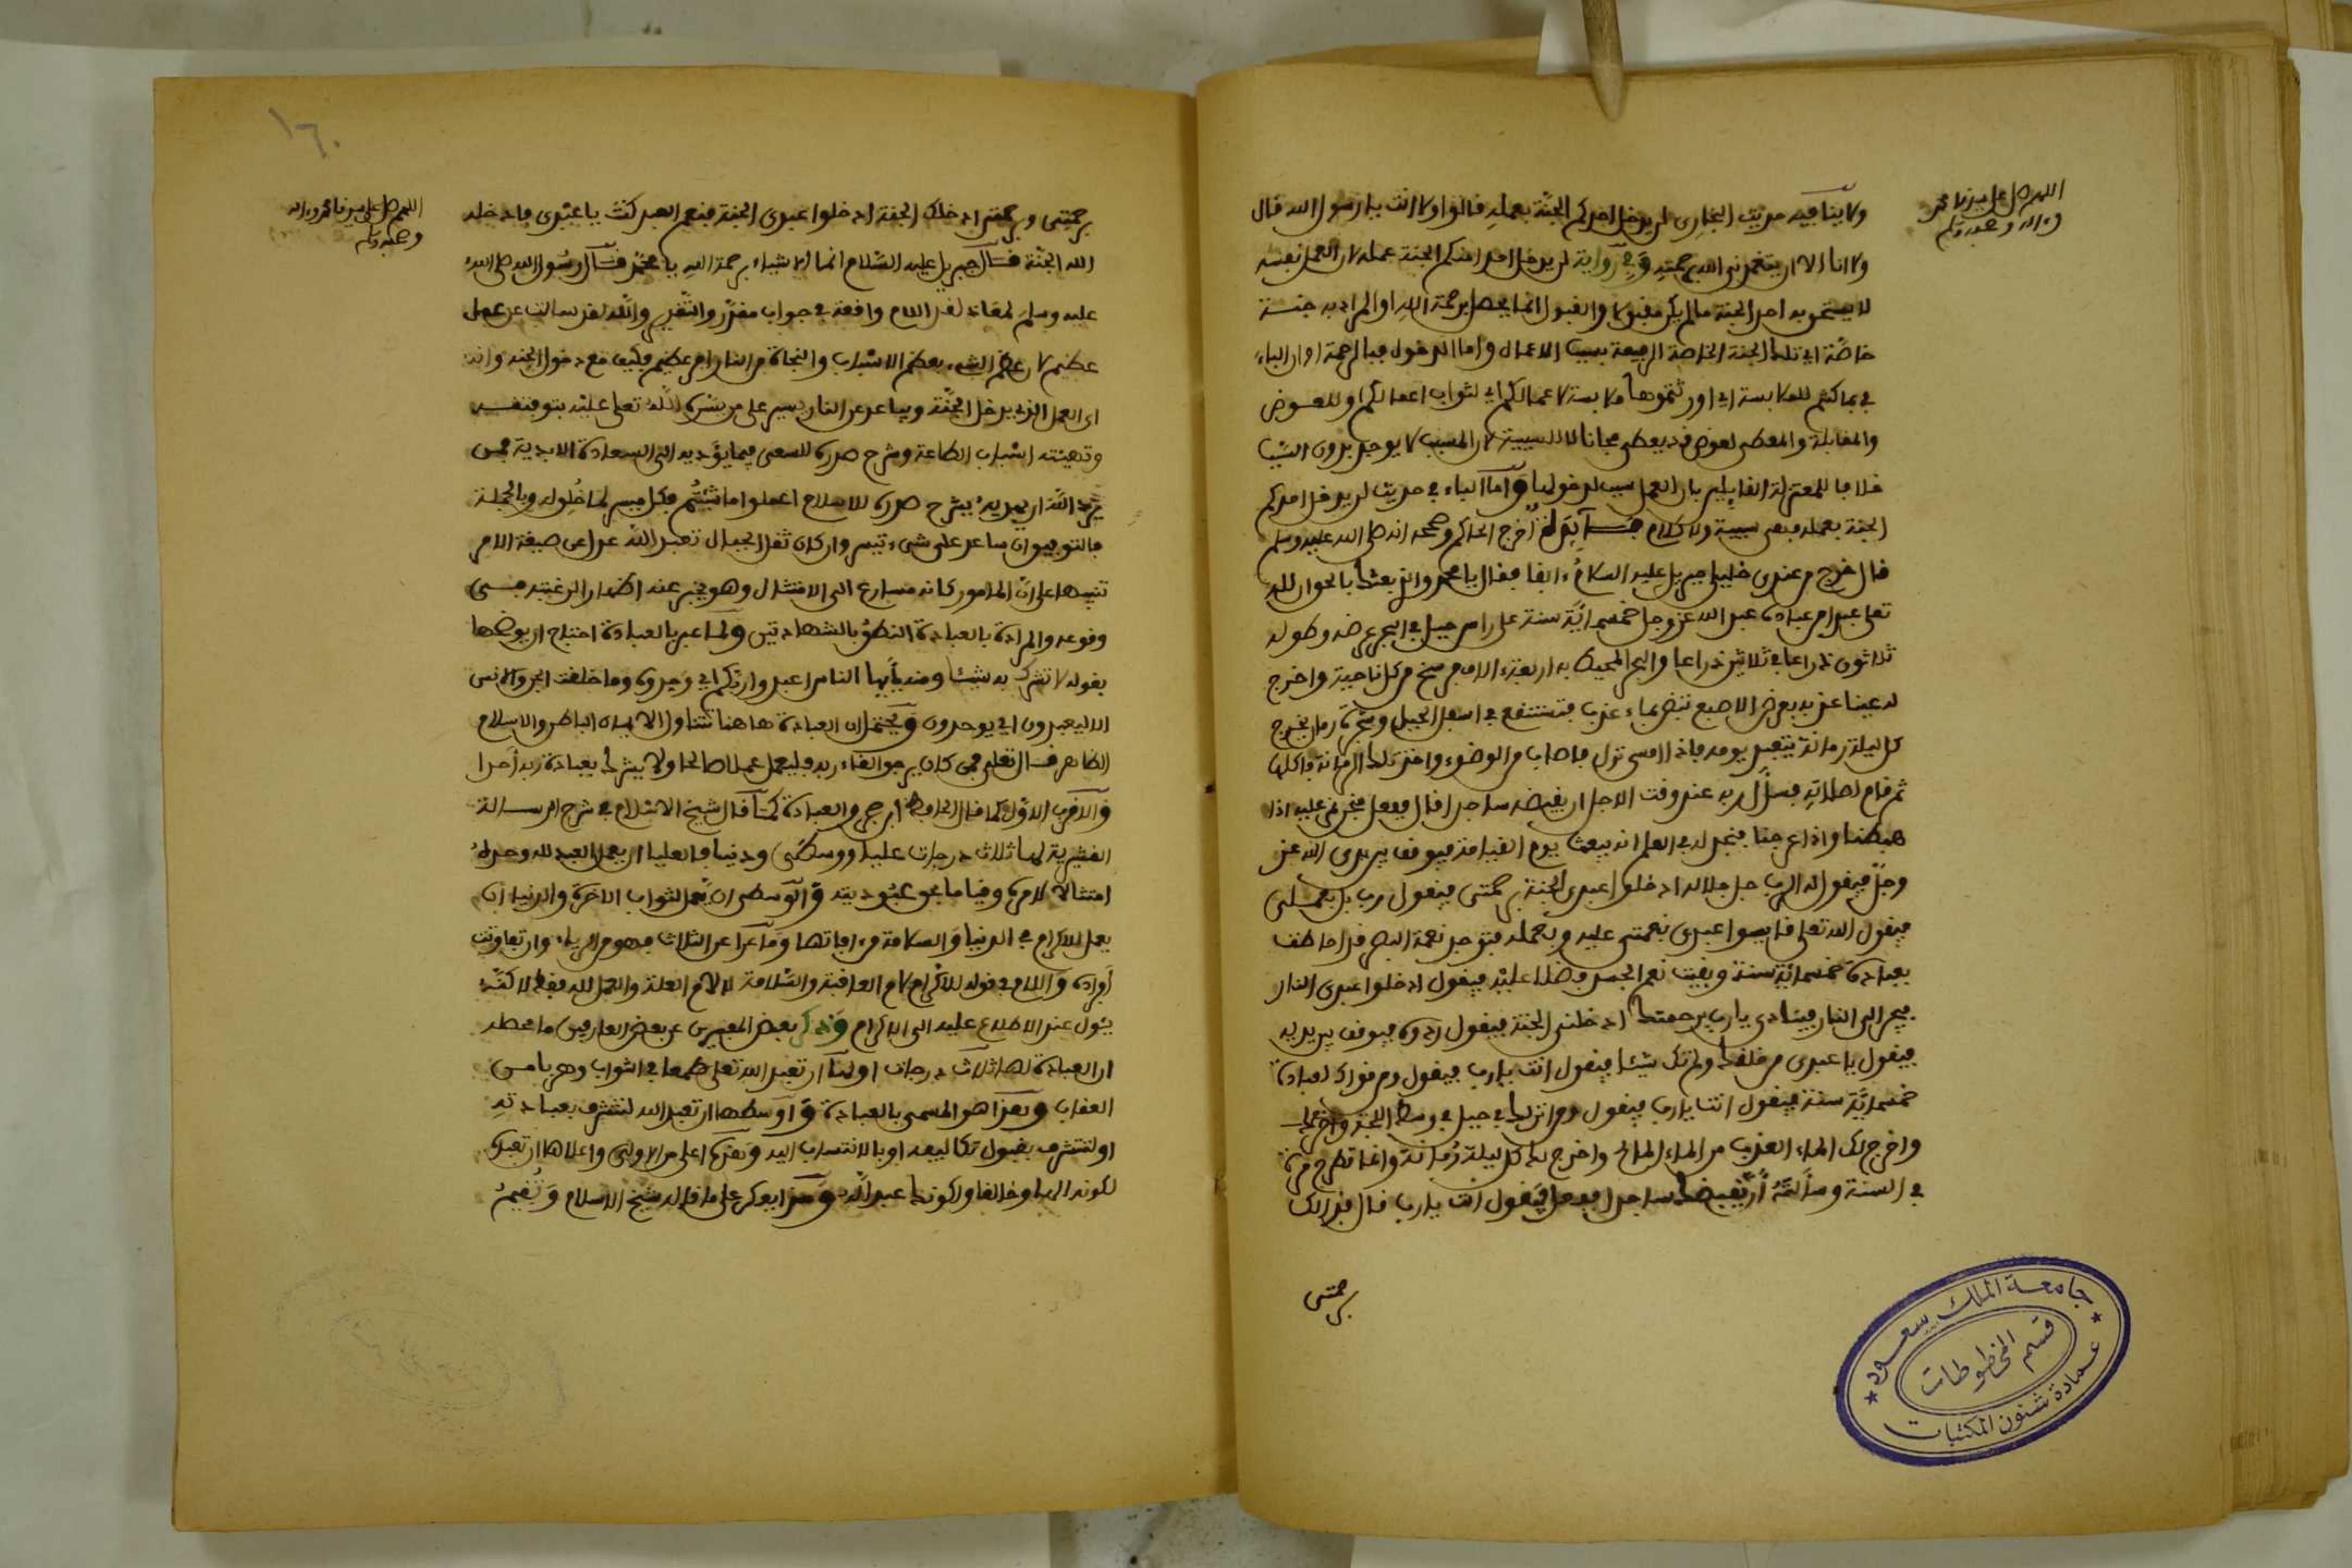 اللهم صل على سيدنا محمد
وءاله وصحبه وسلم
ولا ينافيه حديث البخاري لن يدخل احدكم الجنة بعمله قالوا ولا انت يا رسول الله قال
ولا انا الا ان يتغمدني الله برحمته وفي رواية لن يدخل احدا منكم الجنة عمله لان العمل نفسه
لا يستحق به احد الجنة ما لم يكن مقبولا والقبول انما يحصل برحمة الله او المراد به جنسة
خاصة اي تلك الجنة الخاصة الرفيعة بسبب الاعمال واما الدخول فبالرحمة او ان الباء
في بما كنتم للملابسة اي اورثتموها ملابسة لاعمالكم اي لثواب اعمالكم او للعوض
والمقابلة والمعطي لعوض قد يعطي مجانا لا للسببية لان المسبب لا يوجد بدون السبب
خلافا للمعتزلة القايلين بان العمل سبب لدخولها واما الباء في حديث لن يدخل احدكم
الجنة بعمله فهي سببية ولا كلام فائدة اخرج الحاكم وصححه انه صلى الله عليه وسلم
قال خرج من عندي خليلي جبريل عليه السلام ءانفا فقال يا محمد والذي بعثك بالحق ان لله
تعلى عبدا من عباده عبد الله عز وجل خمسمائة سنة على راس جبل في البحر عرضه وطوله
ثلاثون ذراعا في ثلاثين ذراعا والبحر المحيط به اربعة ءالاف فرسخ من كل ناحية واخرج
له عينا عذبة بعرض الاصبع تبض بماء عذب فتستنقع في اسفل الجبل وشجرة رمان تخرج
كل ليلة رمانة يتعبد يومه فاذا امسى نزل فاصاب من الوضوء واخذ تلك الرمانة فاكلها
ثم قام لصلاته فسأل ربه عند وقت الاجل ان يقبضه ساجدا قال ففعل فنحن نمر عليه اذا
هبطنا واذا عرجنا فنجد له في العلم انه يبعث يوم القيامة فيوقف بين يدي الله عز
وجل فيقول له الرب جل جلاله ادخلوا عبدي الجنة برحمتي فيقول رب بل بعملي
فيقول الله تعلى قايسوا عبدي بنعمتي عليه وبعمله فتوجد نعمة البصر قد احاطت
بعبادة خمسمائة سنة وبقيت نعم الجسد فضلا عليه فيقول ادخلوا عبدي النار
فيجر الى النار فينادي يا رب برحمتك ادخلني الجنة فيقول ردوه فيوقف بين يديه
فيقول يا عبدي من خلقك ولم تك شيئا فيقول انت يا رب فيقول ومن قواك لعبادة
خمسمائة سنة فيقول انت يا رب فيقول ومن انزلك في جبل في وسط اللجة
واخرج لك الماء العذب من الماء المالح واخرج لك كل ليلة رمانة وانما تطرح مرة
في السنة وسألته أن يقبضك ساجدا ففعل فيقول انت يا رب قال فذالك
برحمتي
جامعة الملك سعود
قسم المخطوطات
عمادة شئون المكتبات
١٦٠
اللهم صل على سيدنا محمد وءاله
وصحبه وسلم
برحمتي وبرحمتي ادخلك الجنة ادخلوا عبدي الجنة فنعم العبد كنت يا عبدي فادخله
الله الجنة قال جبريل عليه السلام انما الاشياء برحمة الله يا محمد فقال رسول الله صلى الله
عليه وسلم لمعاذ لقد اللام واقعة في جواب مقدر والتقدير والله لقد سالت عن عمل
عظيم لان عظم الشيء بعظم الاسباب والنجاة من النار امر عظيم فكيف مع دخول الجنة وانه
اي العمل الذي يدخل الجنة ويباعد عن النار يسير على من يسره الله تعلى عليه بتوفيقه
وتهيئته اسباب الطاعة وشرح صدره للسعي فيما يؤديه الى السعادة الابدية فمن
يرد الله ان يهديه يشرح صدره للاسلام اعملوا ما شئتم فكل ميسر لما خلق له وبالجملة
فالتوفيق ان ساعد على شيء تيسر وان كان ثقل الجبال تعبد الله عدل عن صيغة الامر
تنبيها على ان المامور كانه مسارع الى الامتثال وهو يخبر عنه اظهارا لرغبته في
وقوعه والمراد بالعبادة النطق بالشهادتين ولما عبر بالعبادة احتاج ان يوضحها
بقوله لا تشرك به شيئا ومنه يأيها الناس اعبدوا ربكم اي وحدوه وما خلقت الجن والانس
الا ليعبدون اي يوحدون ويحتمل ان العبادة هاهنا تتناول الايمان الباطن والاسلام
الظاهر قال تعلى فمن كان يرجوا لقاء ربه فليعمل عملا صالحا ولا يشرك بعبادة ربه أحدا
والاقرب الاول كما قال الحافظ ابن حجر والعبادة كما قال شيخ الاسلام في شرح الرسالة
القشيرية لها ثلاث درجات عليا ووسطى ودنيا فالعليا ان يعمل العبد لله وحده
امتثالا لامره وقياما بحق عبوديته والوسطى ان يعمل لثواب الاخرة والدنيا ان
يعمل للاكرام في الدنيا والسلامة من ءافاتها وما عدا عن الثلاث فهو من الرياء وان تفاوتت
أفراده واللام في قوله للاكرام لام العاقبة والسلامة لا لام العلة والعمل لله فقط لاكنه
يئول عند الاطلاع عليه الى الاكرام وذكر بعض المعبرين عن بعض العارفين ما محطه
ان العبادة لها ثلاث درجات اولها ان تعبد الله تعلى طمعا في الثواب وهربا من
العقاب وهذا هو المسمى بالعبادة واوسطها ان تعبد الله لتتشرف بعبادته
او لتتشرف بقبول تكاليفه او بالانتساب اليه وهذه اعلى من الاولى واعلاها ان تعبده
لكونه الها وخالقا ولكونك عبدا له وهذا يعكر على ما قاله شيخ الاسلام وتقيم